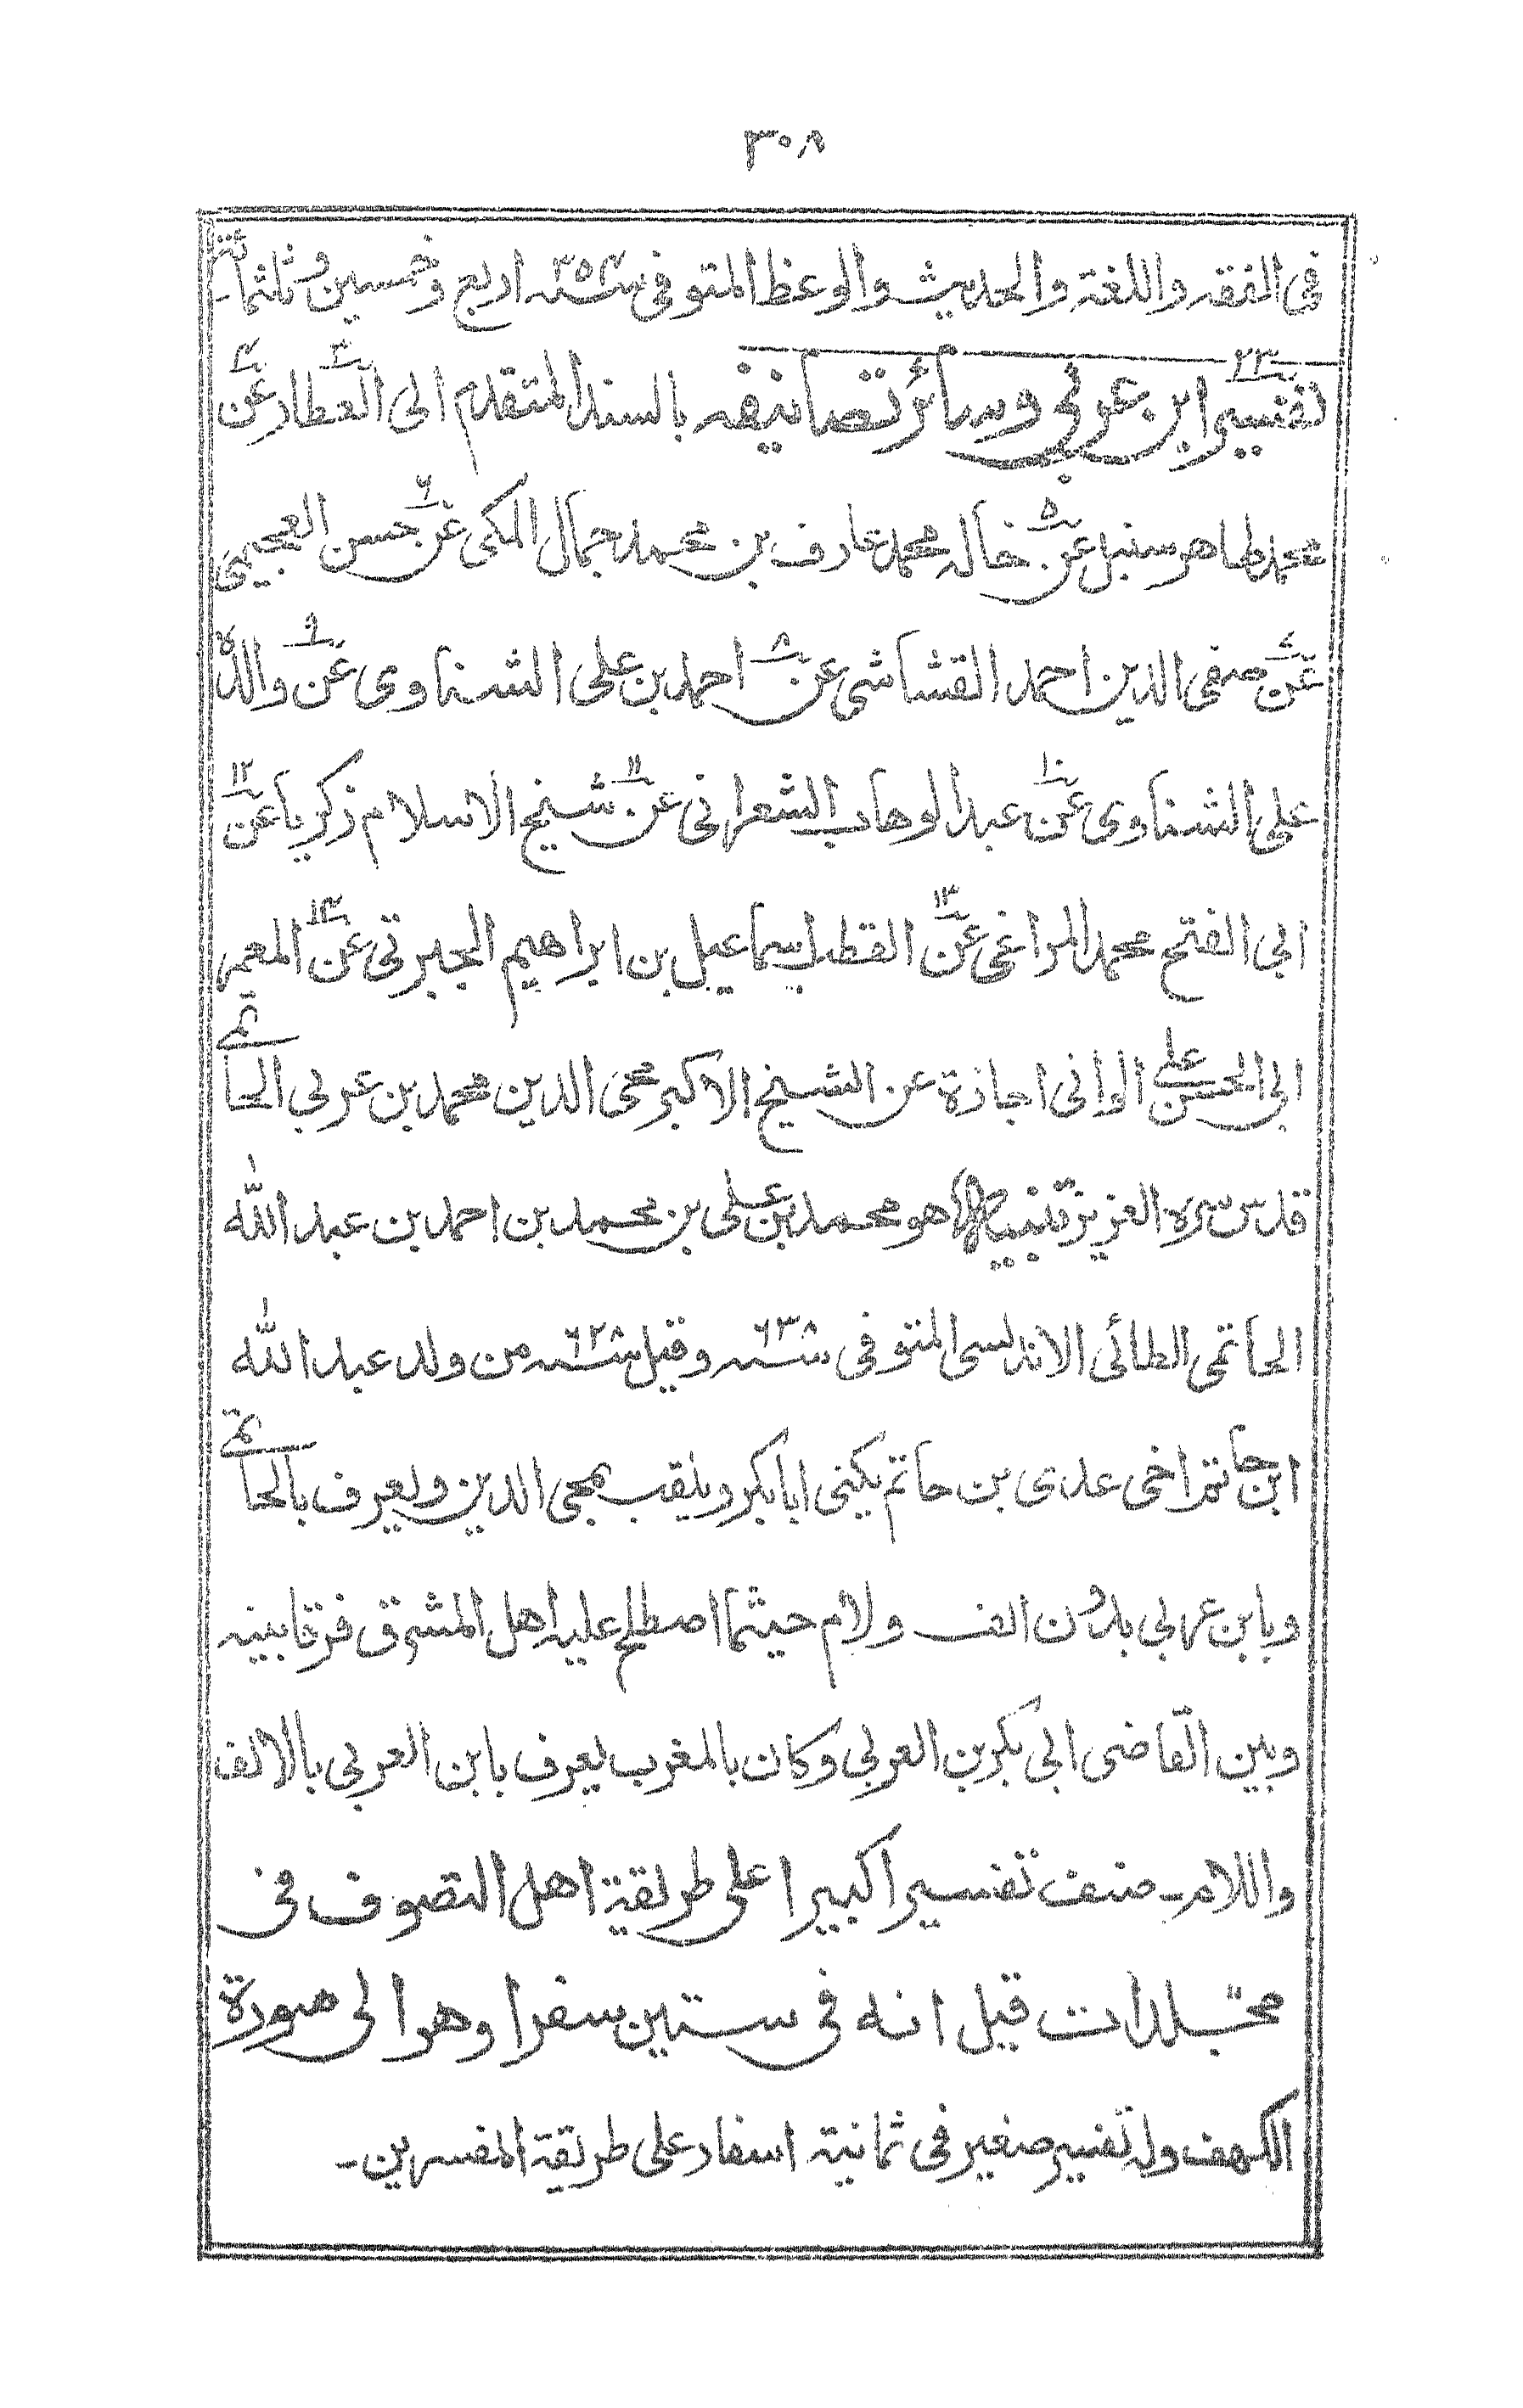 ٣٠٨
فى الفقه واللغة والحديث والوعظ المتوفى سنة ٣٥٤ اربع وخمسين وثلثمائة
٢٣ تفسير ابن عربي وسائر تصانيفه بالسند المتقدم الى العطار عن
محمد طاهر سنبل عن خاله محمد عارف بن محمد جمال المكى عن حسن العجيمى
عن صفى الدين احمد القشاشى عن احمد بن على الشناوى عن والده
على الشناوى عن عبد الوهاب الشعرانى عن شيخ الاسلام زكريا عن
ابى الفتح محمد المراغى عن القطب اسماعيل بن ابراهيم الجبرتى عن المعمر
ابى الحسن على الوانى اجازة عن الشيخ الاكبر محى الدين محمد بن عربي الحاتمى
قدس سره العزيز تنبيه هو محمد بن على بن محمد بن احمد بن عبد الله
الحاتمى الطائى الاندلسى المتوفى سنة ٦٣٨ وقيل سنة ٦٢٨ من ولد عبد الله
ابن حاتم اخى عدى بن حاتم يكنى ابابكر ويلقب بمحى الدين ويعرف بالحاتمى
وبابن عربي بدون الف ولام حيثما اصطلح عليه اهل المشرق فرقا بينه
وبين القاضى ابى بكر بن العربي وكان بالمغرب يعرف بابن العربي بالالف
واللام ـ صنف تفسيرا كبيرا على طريقة اهل التصوف فى
مجلدات قيل انه فى ستين سفرا وهو الى سورة
الكهف وله تفسير صغير فى ثمانية اسفار على طريقة المفسرين ـ